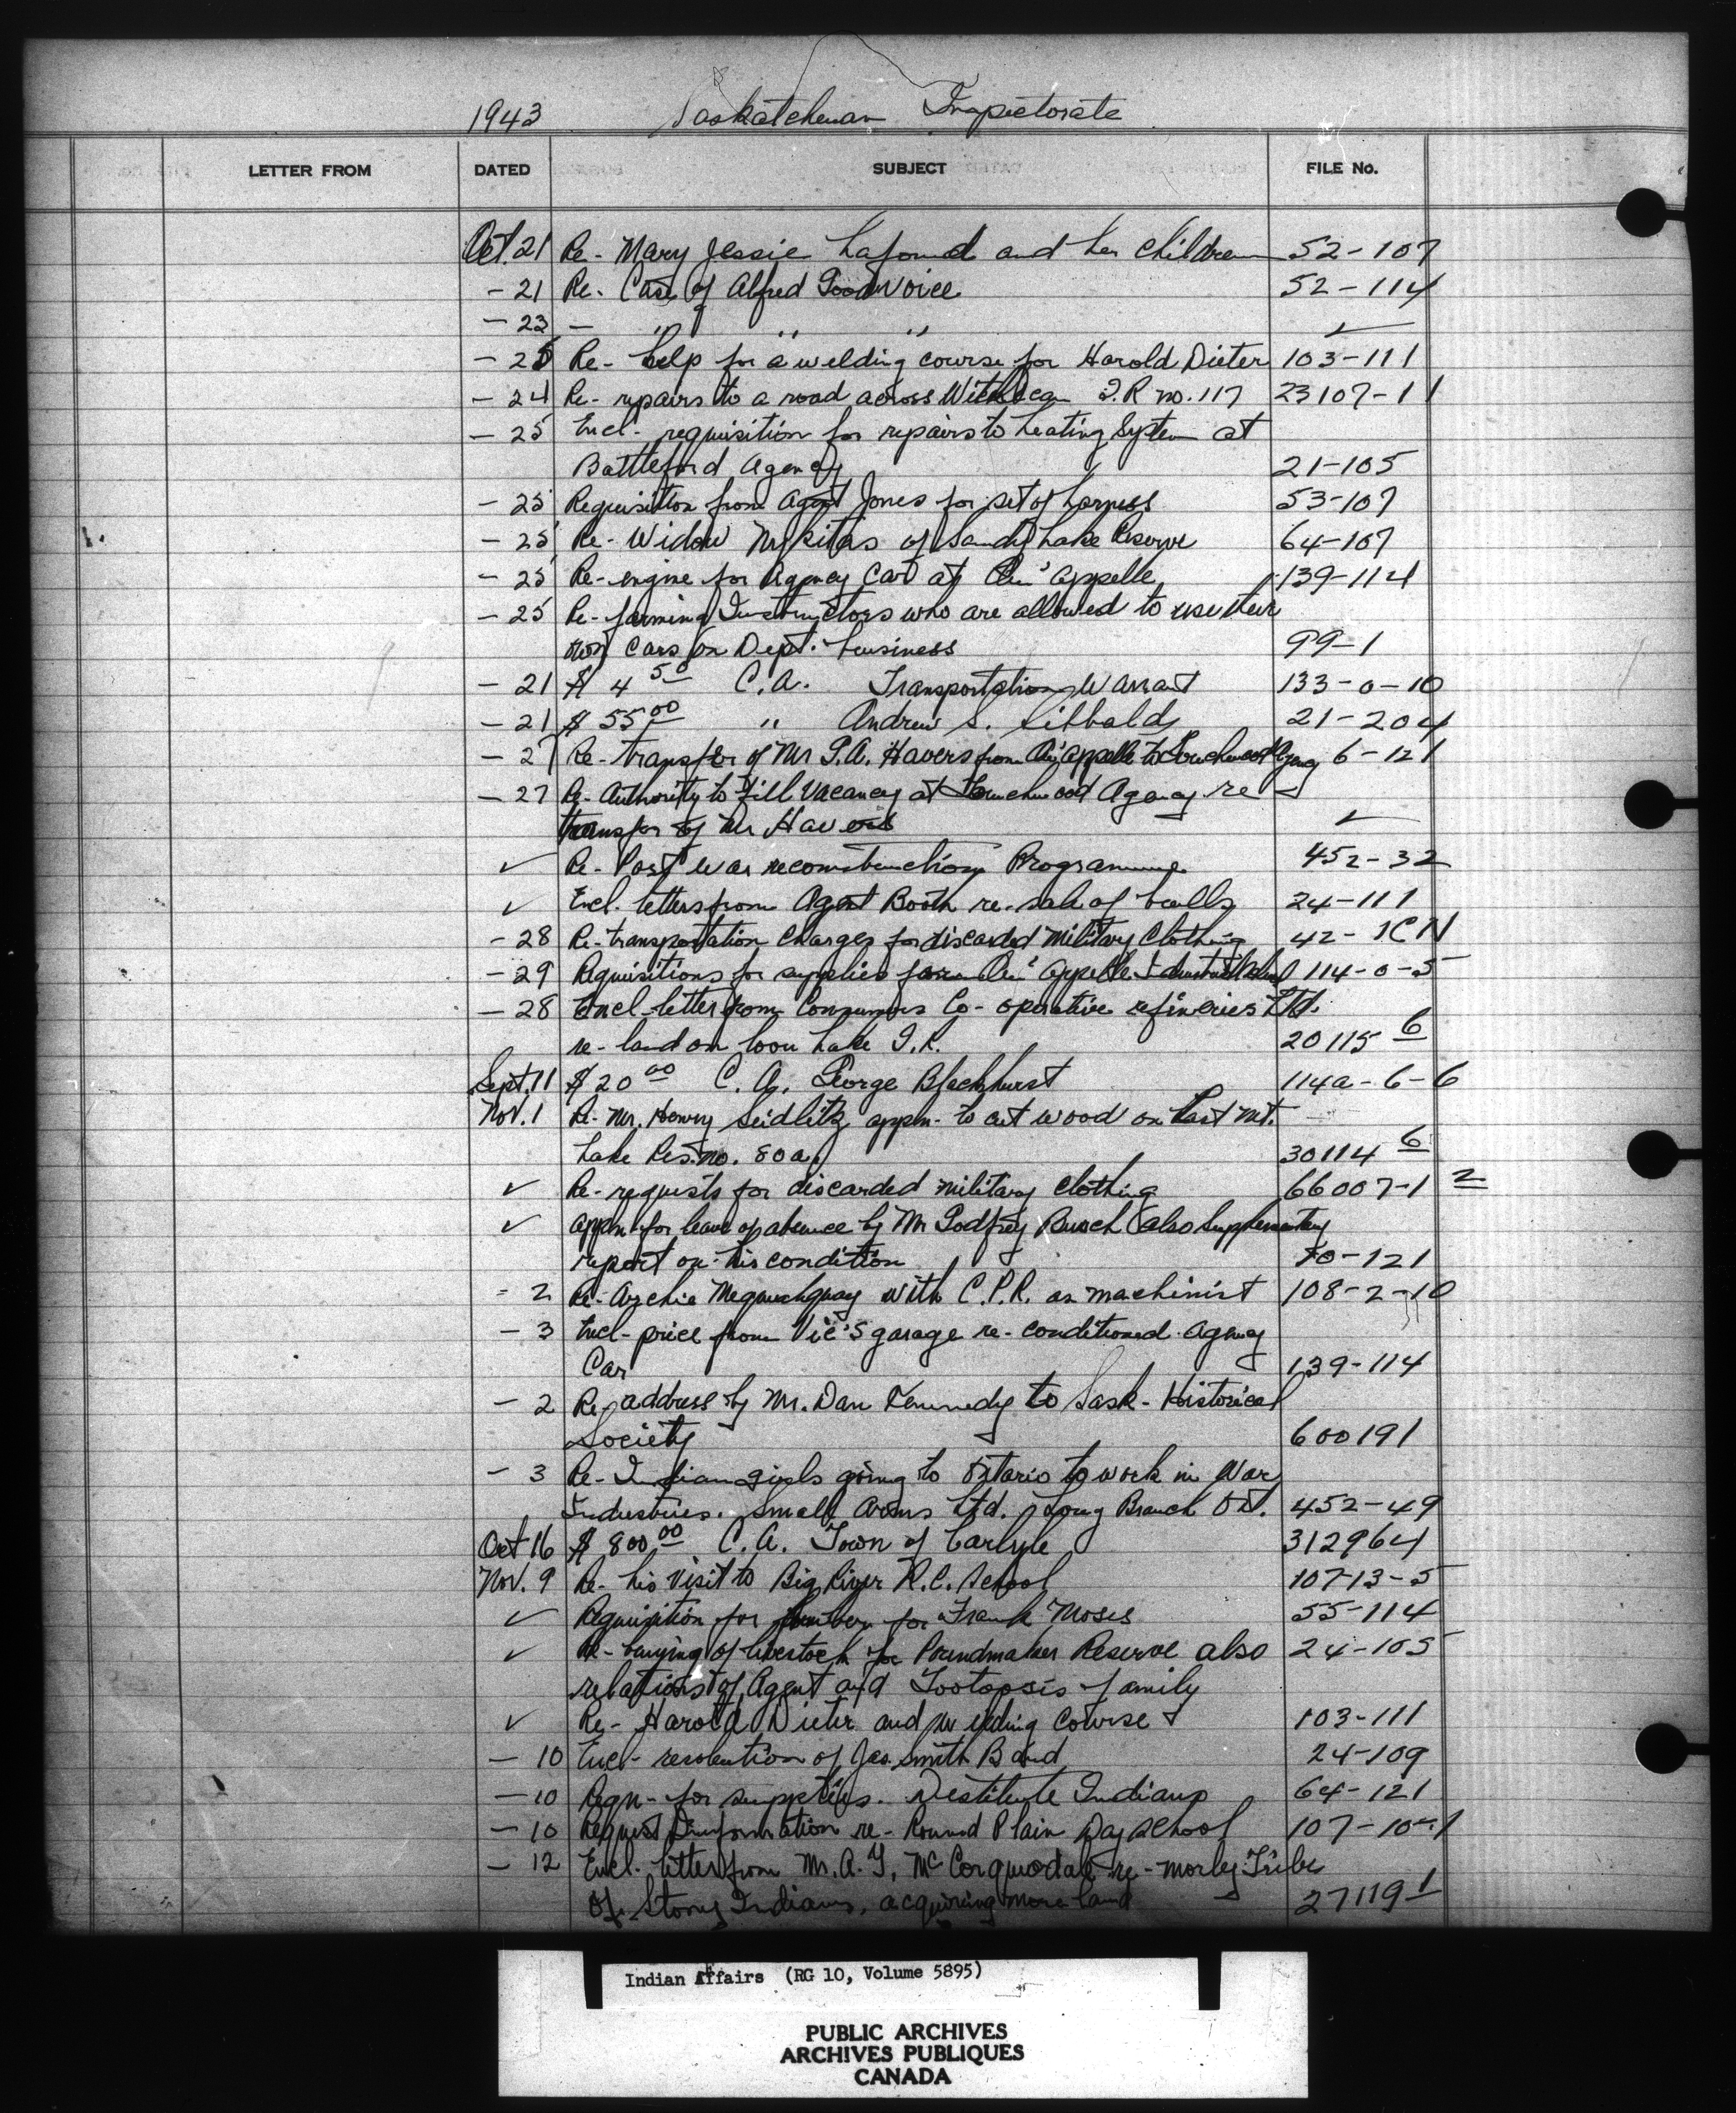 1943 Saskatchewan Inspectorate
LETTER FROM DATED SUBJECT FILE No.
Oct. 21 Re- Mary Jessie Lafond and her children 52-107
- 21 Re- Case of Alfred Goodvoice 52-114
- 23 - " " " ✓
- 25 Re- help for a welding course for Harold Dieter 103-111
- 24 Re- repairs to a road across Witchekan I.R no. 117 23107-11
- 25 Encl- requisition for repairs to heating System at
Battleford Agency 21-105
- 25 Requisition from Agent Jones for set of harness 53-107
- 25 Re- Widow of Sandy Lake Reserve 64-107
- 25 Re- engine for Agency Car at Qu'Appelle 139-114
- 25 Re- farming Instructors who are allowed to use their
own cars on Dept. business 99-1
- 21 $ 4 50 C.A. Transportation Warrant 133-0-10
- 21 $ 55 00 " Andrew S. Sibbald 21-204
- 27 Re- transfer of Mr G.A. Havers from Qu'Appelle to Touchwood Agency 6-121
- 27 Re- Authority to fill vacancy at Touchwood Agency re
transfer of Mr Havers ✓
✓ Re- Post war reconstruction Programme 452-32
✓ Encl. letters from Agent Booth re- sale of bulls 24-111
- 28 Re- transportation charges for discarded military clothing 42-1CN
- 29 Requisitions for supplies for Qu'Appelle Industrial School 114-0-5
- 28 Encl- letter from Consumers Co-operative refineries Ltd.
re- land on Loon Lake I.R. 20115 6
Sept. 11 $ 20 00 C.A. George Blackhurst 114a-6-6
Nov. 1 Re- Mr. Henry Seidlitz appn- to cut wood on Last Mt.
Lake Res. no. 80a. 30114 6
✓ Re- requests for discarded military clothing 66007-1 2
✓ Appn- for leave of absence by Mr Godfrey Busch (also Supplementary
report on his condition 70-121
- 2 Re- Archie with C.P.R. as machinist 108-2-10
- 3 Encl- price from Vic's garage re- conditioned Agency
Car 139-114
- 2 Re- address by Mr. Dan Kennedy to Sask- Historical
Society 600191
- 3 Re- Indian girls going to Ontario to work in War
Industries. Small Arms Ltd. Long Branch Ont. 452-49
Oct 16 $ 800 00 C.A. Town of Carlyle 312964
Nov. 9 Re- his visit to Big River R.C. School 107-13-5
✓ Requisition for lumber for Frank Moses 55-114
✓ Re- buying of livestock for Poundmaker Reserve also 24-105
relations of Agent and Tootoosis family
✓ Re- Harold Dieter and welding course 103-111
- 10 Encl- resolution of Jas. Smith Band 24-109
- 10 Reqn- for supplies. Destitute Indians 64-121
- 10 Request Information re- Round Plain Day School 107-10-1
- 12 Encl. letter from Mr. A. Y. McCorquodale re- Morley Tribe
of Stony Indians, acquiring more land 27119 1
Indian Affairs (RG 10, Volume 5895)
PUBLIC ARCHIVES
ARCHIVES PUBLIQUES
CANADA